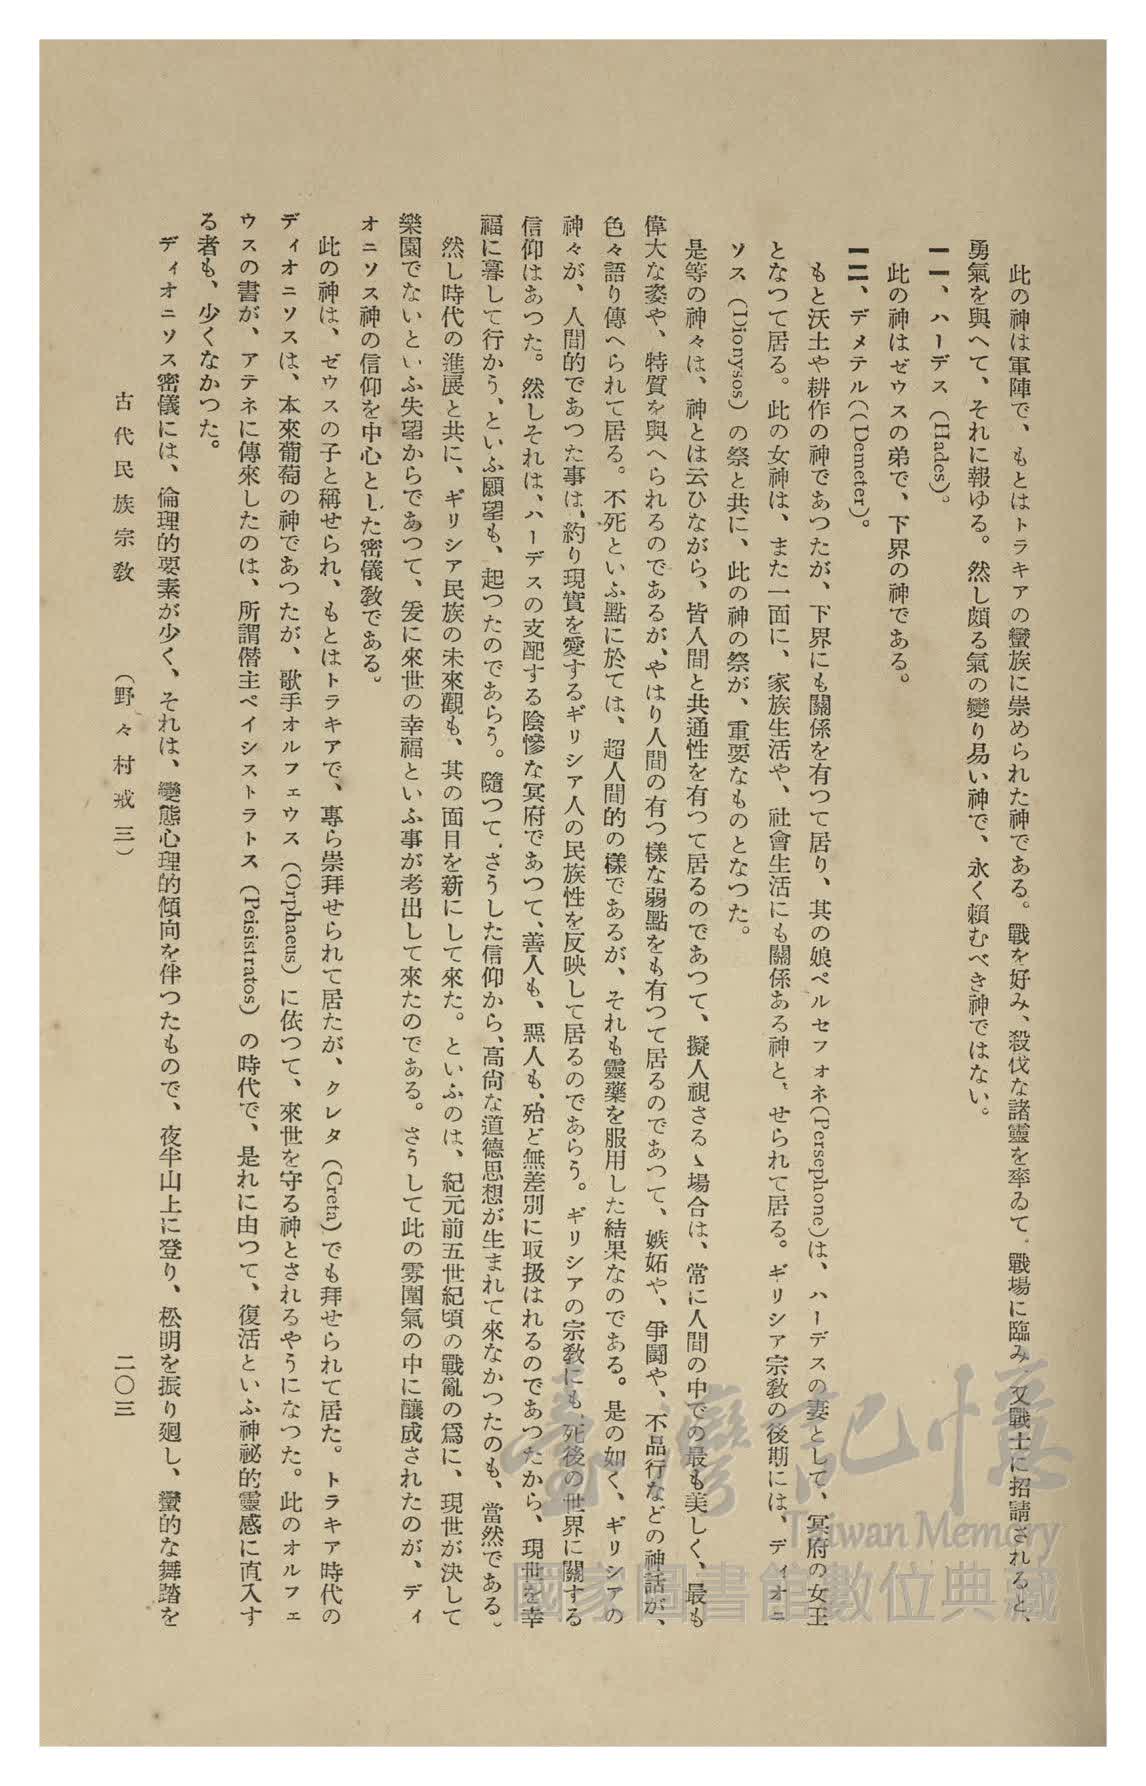 此の神は軍陣で、もとはトラキアの蠻族に崇められた神である。戰を好み、殺伐な諸靈を率ゐて、戰場に臨み、又戰士に招請されると、
勇氣を與へて、それに報ゆる。然し頗る氣の變り易い神で、永く賴むべき神ではない。
一一、ハーデス（Hades）。
此の神はゼウスの弟で、下界の神である。
一二、デメテル（(Demeter）。
もと沃土や耕作の神であつたが、下界にも關係を有つて居り、其の娘ペルセフォネ（Persephone）は、ハーデスの妻として、冥府の女王
となつて居る。此の女神は、また一面に、家族生活や、社會生活にも關係ある神と、せられて居る。ギリシア宗敎の後期には、ディオニ
ソス（Dionysos）の祭と共に、此の神の祭が、重要なものとなつた。
是等の神々は、神とは云ひながら、皆人間と共通性を有つて居るのであつて、擬人視さるゝ場合は、常に人間の中での最も美しく、最も
偉大な姿や、特質を與へられるのであるが、やはり人間の有つ樣な弱點をも有つて居るのであつて、嫉妬や、爭鬪や、不品行などの神話が、
色々語り傳へられて居る。不死といふ點に於ては、超人間的の樣であるが、それも靈藥を服用した結果なのである。是の如く、ギリシアの
神々が、人間的であつた事は、約り現實を愛するギリシア人の民族性を反映して居るのであらう。ギリシアの宗敎にも、死後の世界に關する
信仰はあつた。然しそれは、ハーデスの支配する陰慘な冥府であつて、善人も、惡人も、殆ど無差別に取扱はれるのであつたから、現世を幸
福に暮して行かう、といふ願望も、起つたのであらう。隨つて、さうした信仰から、高尙な道德思想が生まれて來なかつたのも、當然である。
然し時代の進展と共に、ギリシア民族の未來觀も、其の面目を新にして來た。といふのは、紀元前五世紀頃の戰亂の爲に、現世が決して
樂園でないといふ失望からであつて、爰に來世の幸福といふ事が考出して來たのである。さうして此の雰圍氣の中に釀成されたのが、ディ
オニソス神の信仰を中心とした密儀敎である。
此の神は、ゼウスの子と稱せられ、もとはトラキアで、專ら崇拜せられて居たが、クレタ（Creta）でも拜せられて居た。トラキア時代の
ディオニソスは、本來葡萄の神であつたが、歌手オルフェウス（Orphaeus）に依つて、來世を守る神とされるやうになつた。此のオルフェ
ウスの書が、アテネに傳來したのは、所謂僭主ペイシストラトス（Peisistratos）の時代で、是れに由つて、復活といふ神祕的靈感に直入す
る者も、少くなかつた。
ディオニソス密儀には、倫理的要素が少く、それは、變態心理的傾向を伴つたもので、夜半山上に登り、松明を振り廻し、蠻的な舞踏を
古代民族宗敎　（野々村戒三）　二〇三
臺灣記憶
Taiwan Memory
國家圖書館數位典藏